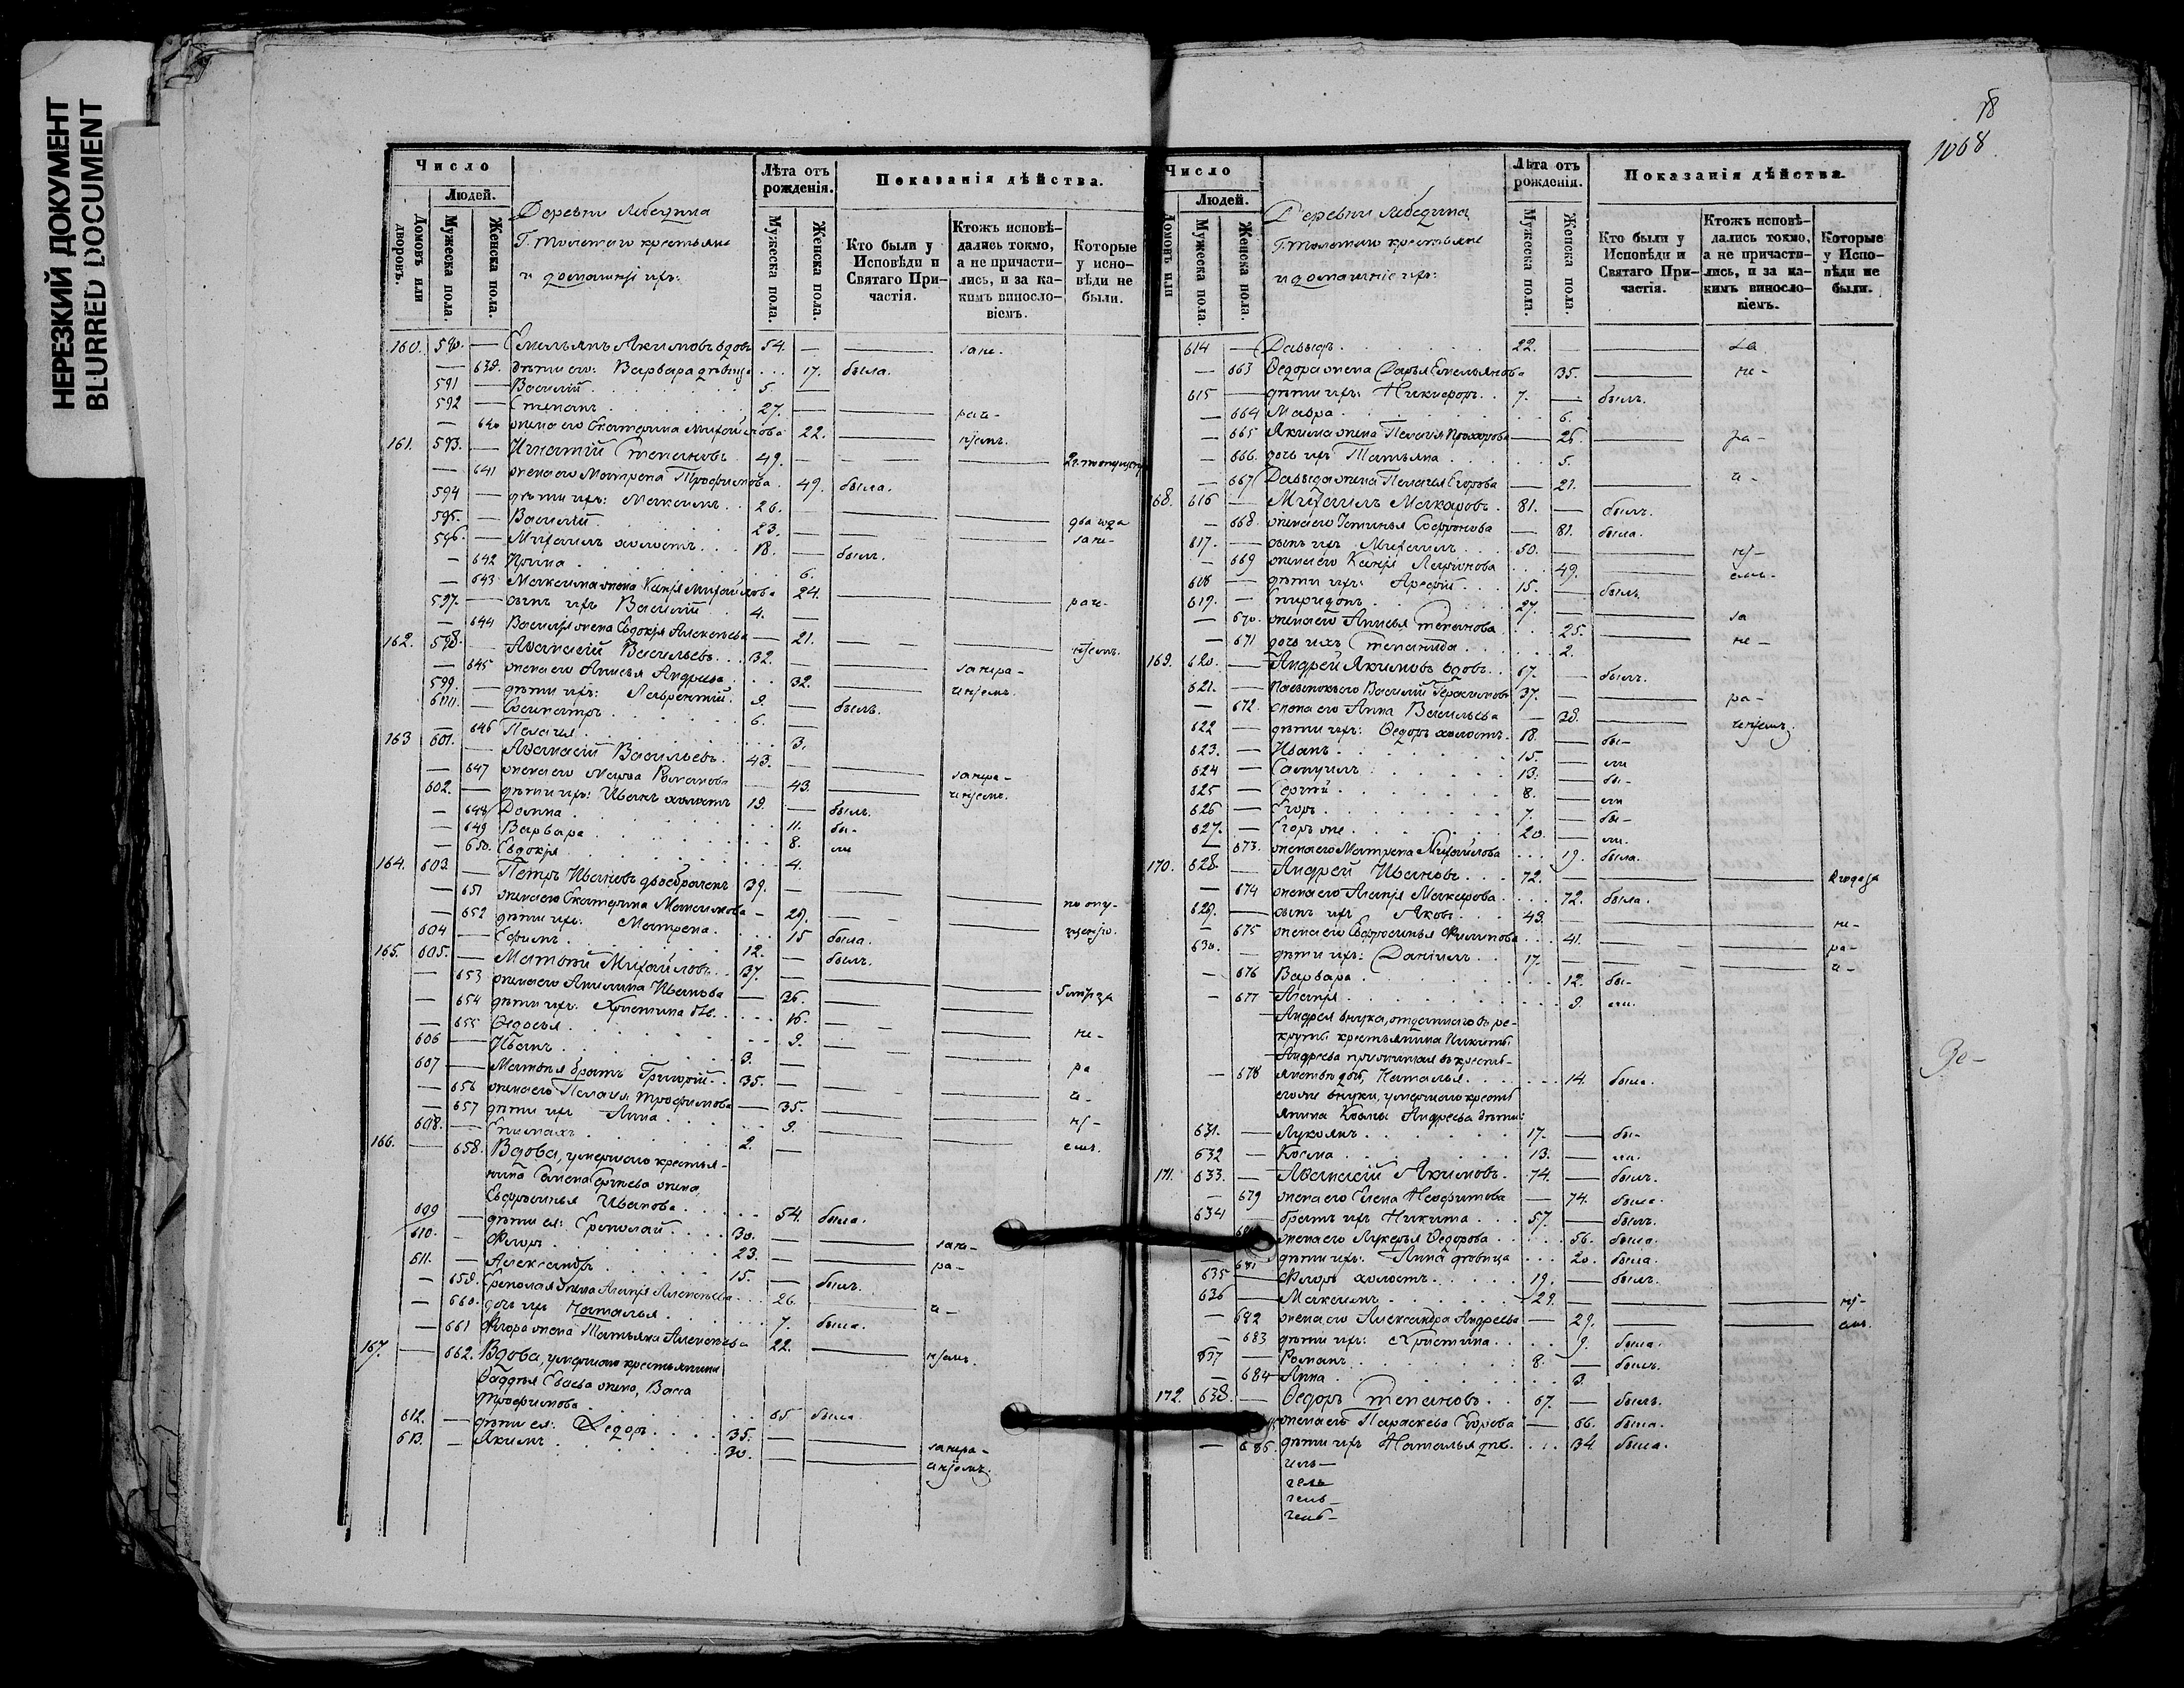 НЕРЕЗКИЙ ДОКУМЕНТ
BLURRED DOCUMENT
Число
Людей.
Домовъ или дворовъ.
Мужеска пола.
Женска пола.
Деревни Лебедина
Г. Толстаго крестьяне
и домашніе ихъ:
Лѣта отъ рожденія.
Мужеска пола.
Женска пола.
Показанія дѣйства.
Кто были у Исповѣди и Святаго Причастія.
Ктожъ исповѣдались токмо, а не причастились, и за какимъ винословіемъ.
Которые у исповѣди не были.
160. 590. — Емельянъ Акимовъ вдовъ 54. — — зане-
— 639. дѣти его: Варвара дѣвица . . . 17. была.
591 — Василій 5. —
592 — Степанъ 27. — — рач-
— 640 жена его Екатерина Михайлова 22. — ніемъ.
161. 593. — Игнатій Степановъ 49. — —
— 641 жена его Матрена Трофимова . 49. была.
594 — дѣти ихъ: Максимъ . . 26. — — — два года
595. — Василій 23. — — — зане-
596. — Михаилъ холостъ . . . 18. — былъ.
— 642 Ирина 6.
— 643 Максима жена Ксенія Михайлова 24. — — раче-
597. — сынъ ихъ Василій . . 4. —
— 644 Василія жена Евдокія Алексѣева — 21. — — ніемъ.
162. 598. — Аѳанасій Васильевъ . . 32. — — занера-
— 645 жена его Анисья Андреева . . . 32. — ченіемъ.
599. — дѣти ихъ: Лаврентій. 9. — былъ.
600. — 6. —
— 646 Пелагія 3.
163 601. — Аѳанасій Васильевъ . 43. — — занера-
— 647 жена его Марѳа Романова — 43. — ченіемъ.
602. — дѣти ихъ: Иванъ холостъ 19. — былъ.
— 648 Домна 11. бы-
— 649 Варвара 8. ли
— 650. Евдокія 4.
164. 603. — Петръ Ивановъ двоебраченъ 39. — — — по опу-
— 651 жена его Екатерина Максимова — 29. — — щенію.
— 652 дѣти ихъ: Матрена . . . . 15 была.
604 — Ефимъ 12. — былъ.
165. 605. — Матвѣй Михайловъ . . 37. — — —
— 653 жена его Акилина Иванова — 36. — —
— 654 дѣти ихъ: Христина дѣв. . . . 16. — —
— 655 Ѳедосья 9. — — не-
606 — Иванъ 3. —
607 — Матвѣя братъ Григорій . . 35. — — ра
— 656 жена его Пелагія Трофимова — 35. — — ч-
— 657 дѣти ихъ Анна 9. — — ні-
608. — 2. — емъ.
166. — 658. Вдова, умершаго крестья-
нина Семена Сергѣева жена,
Евфросинья Иванова . . . . . 54. была.
609 — дѣти ея: Ермолай . . . . 30. — — зане-
610. — Флоръ 23. — — ра-
611. — Александръ 15. — былъ.
— 659. Ермолая жена Агапія Алексѣева . . . 26. — ч-
— 660. дочь ихъ Наталья 7. была.
— 661 Флора жена Татьяна Алексѣева 22. — ніемъ.
167. — 662. Вдова, умершаго крестьянина
Ѳаддея Евсева жена, Васса
Трофимова 65 была
612. — дѣти ея: Ѳедоръ . . . . 35. — — занера-
613. — Якимъ 30. — — ченіемъ.
58
1068
Число
Людей.
Домовъ или
Мужеска пола.
Женска пола.
Деревни Лебедина
Г. Толстаго крестьяне
и домашніе ихъ:
Лѣта отъ рожденія.
Мужеска пола.
Женска пола.
Показанія дѣйства.
Кто были у Исповѣди и Святаго Причастія.
Ктожъ исповѣдались токмо, а не причастились, и за какимъ винословіемъ.
Которые у Исповѣди не были.
614 — Давыдъ 22. — — за
— 663 Ѳедора жена Дарья Емельянова 35. — не-
615 — дѣти ихъ: Никифоръ . . 7. — былъ.
— 664 Мавра 6.
— 665 Якима жена Пелагія Прохорова — 26. — ра-
— 666. дочь ихъ Татьяна 5.
— 667 Давыда жена Пелагія Егорова — 21. — ч-
168. 616 — Михаилъ Макаровъ . 81. — былъ.
— 668. жена его Устинья Софронова — 81. была.
617. — сынъ ихъ Михаилъ . . . 50. — — ні-
— 669 жена его Ксенія Ларіонова . . . 49. — емъ.
618 — дѣти ихъ: Арефій . . . 15. — былъ.
619. — Спиридонъ 27. — — за
— 670. жена его Анисья Степанова . . . 25. — не-
— 671 дочь ихъ Степанида 2.
169. 620. — Андрей Якимовъ вдовъ . . 67. — былъ.
621. — Василій Герасимовъ 37. — — ра-
— 672. жена его Анна Васильева — 38. — ченіемъ.
622 — дѣти ихъ: Ѳедоръ холостъ . 18. — бы-
623. — Иванъ 15. — ли
624 — Самуилъ 13. — бы-
625 — Сергій 8. — ли
626 — Егоръ 7. — бы-
627. — Егоръ же 20. — ли.
— 673. жена его Матрена Михайлова . . . 19. была.
170. 628. — Андрей Ивановъ . . . 72. — — — 2 года
— 674 жена его Агапія Макарова . . . 72. была.
629. — сынъ ихъ Яковъ . . . 43. — — — не-
— 675 жена его Евфросинья Филипова . . . 41. — — ра-
630. — дѣти ихъ: Даніилъ . . . 17. — — — ч-
— 676 Варвара 12. бы-
— 677 Агапія 9. ли.
Андрея внука, отданнаго въ ре-
круты крестьянина Никиты
Андреева прижитая въ кресть-
— 678 янствѣ дочь, Наталья 14. была.
его же внуки, умершаго кресть-
янина Космы Андреева дѣти:
631. — Лукіянъ 17. — бы-
632 — Косма 13. — ли.
171. 633. — Аѳанасій Якимовъ. 74. — былъ.
— 679 жена его Елена Неофитова — 74. была.
634 — братъ ихъ Никита . . . 57. — былъ.
жена его Лукерья Ѳедорова . . . . 56. была.
— 681 дѣти ихъ: Анна дѣвица . . . . 20. была.
635 — Флоръ холостъ 19. — былъ.
636 — Максимъ 29. — — — ні-
— 682 жена его Александра Андреева — 29. — — емъ.
— 683 дѣти ихъ: Христина . . . . 9. была.
637 — Романъ 8. — былъ.
— 684 Анна 3.
172. 638. — Ѳедоръ Степановъ . . 67. — былъ.
жена его Параскева Егорова — 66. была.
— 686. дѣти ихъ Наталья дѣв. . . . 34 была.
Зе-